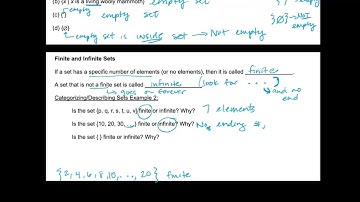 (b) {x | x is a living wooly mammoth} empty set
empty
(c) { } empty set {∅} → NOT empty
(d) {∅} empty set is inside set → Not empty
Finite and Infinite Sets
If a set has a specific number of elements (or no elements), then it is called finite.
A set that is not a finite set is called infinite (look for ... and no end)
↳ goes on forever
Categorizing/Describing Sets Example 2:
Is the set {p, q, r, s, t, u, v} finite or infinite? Why? 7 elements
Is the set {10, 20, 30, ...} finite or infinite? Why? No ending #,
Is the set { } finite or infinite? Why?
{2, 4, 6, 8, 10, ..., 20} finite